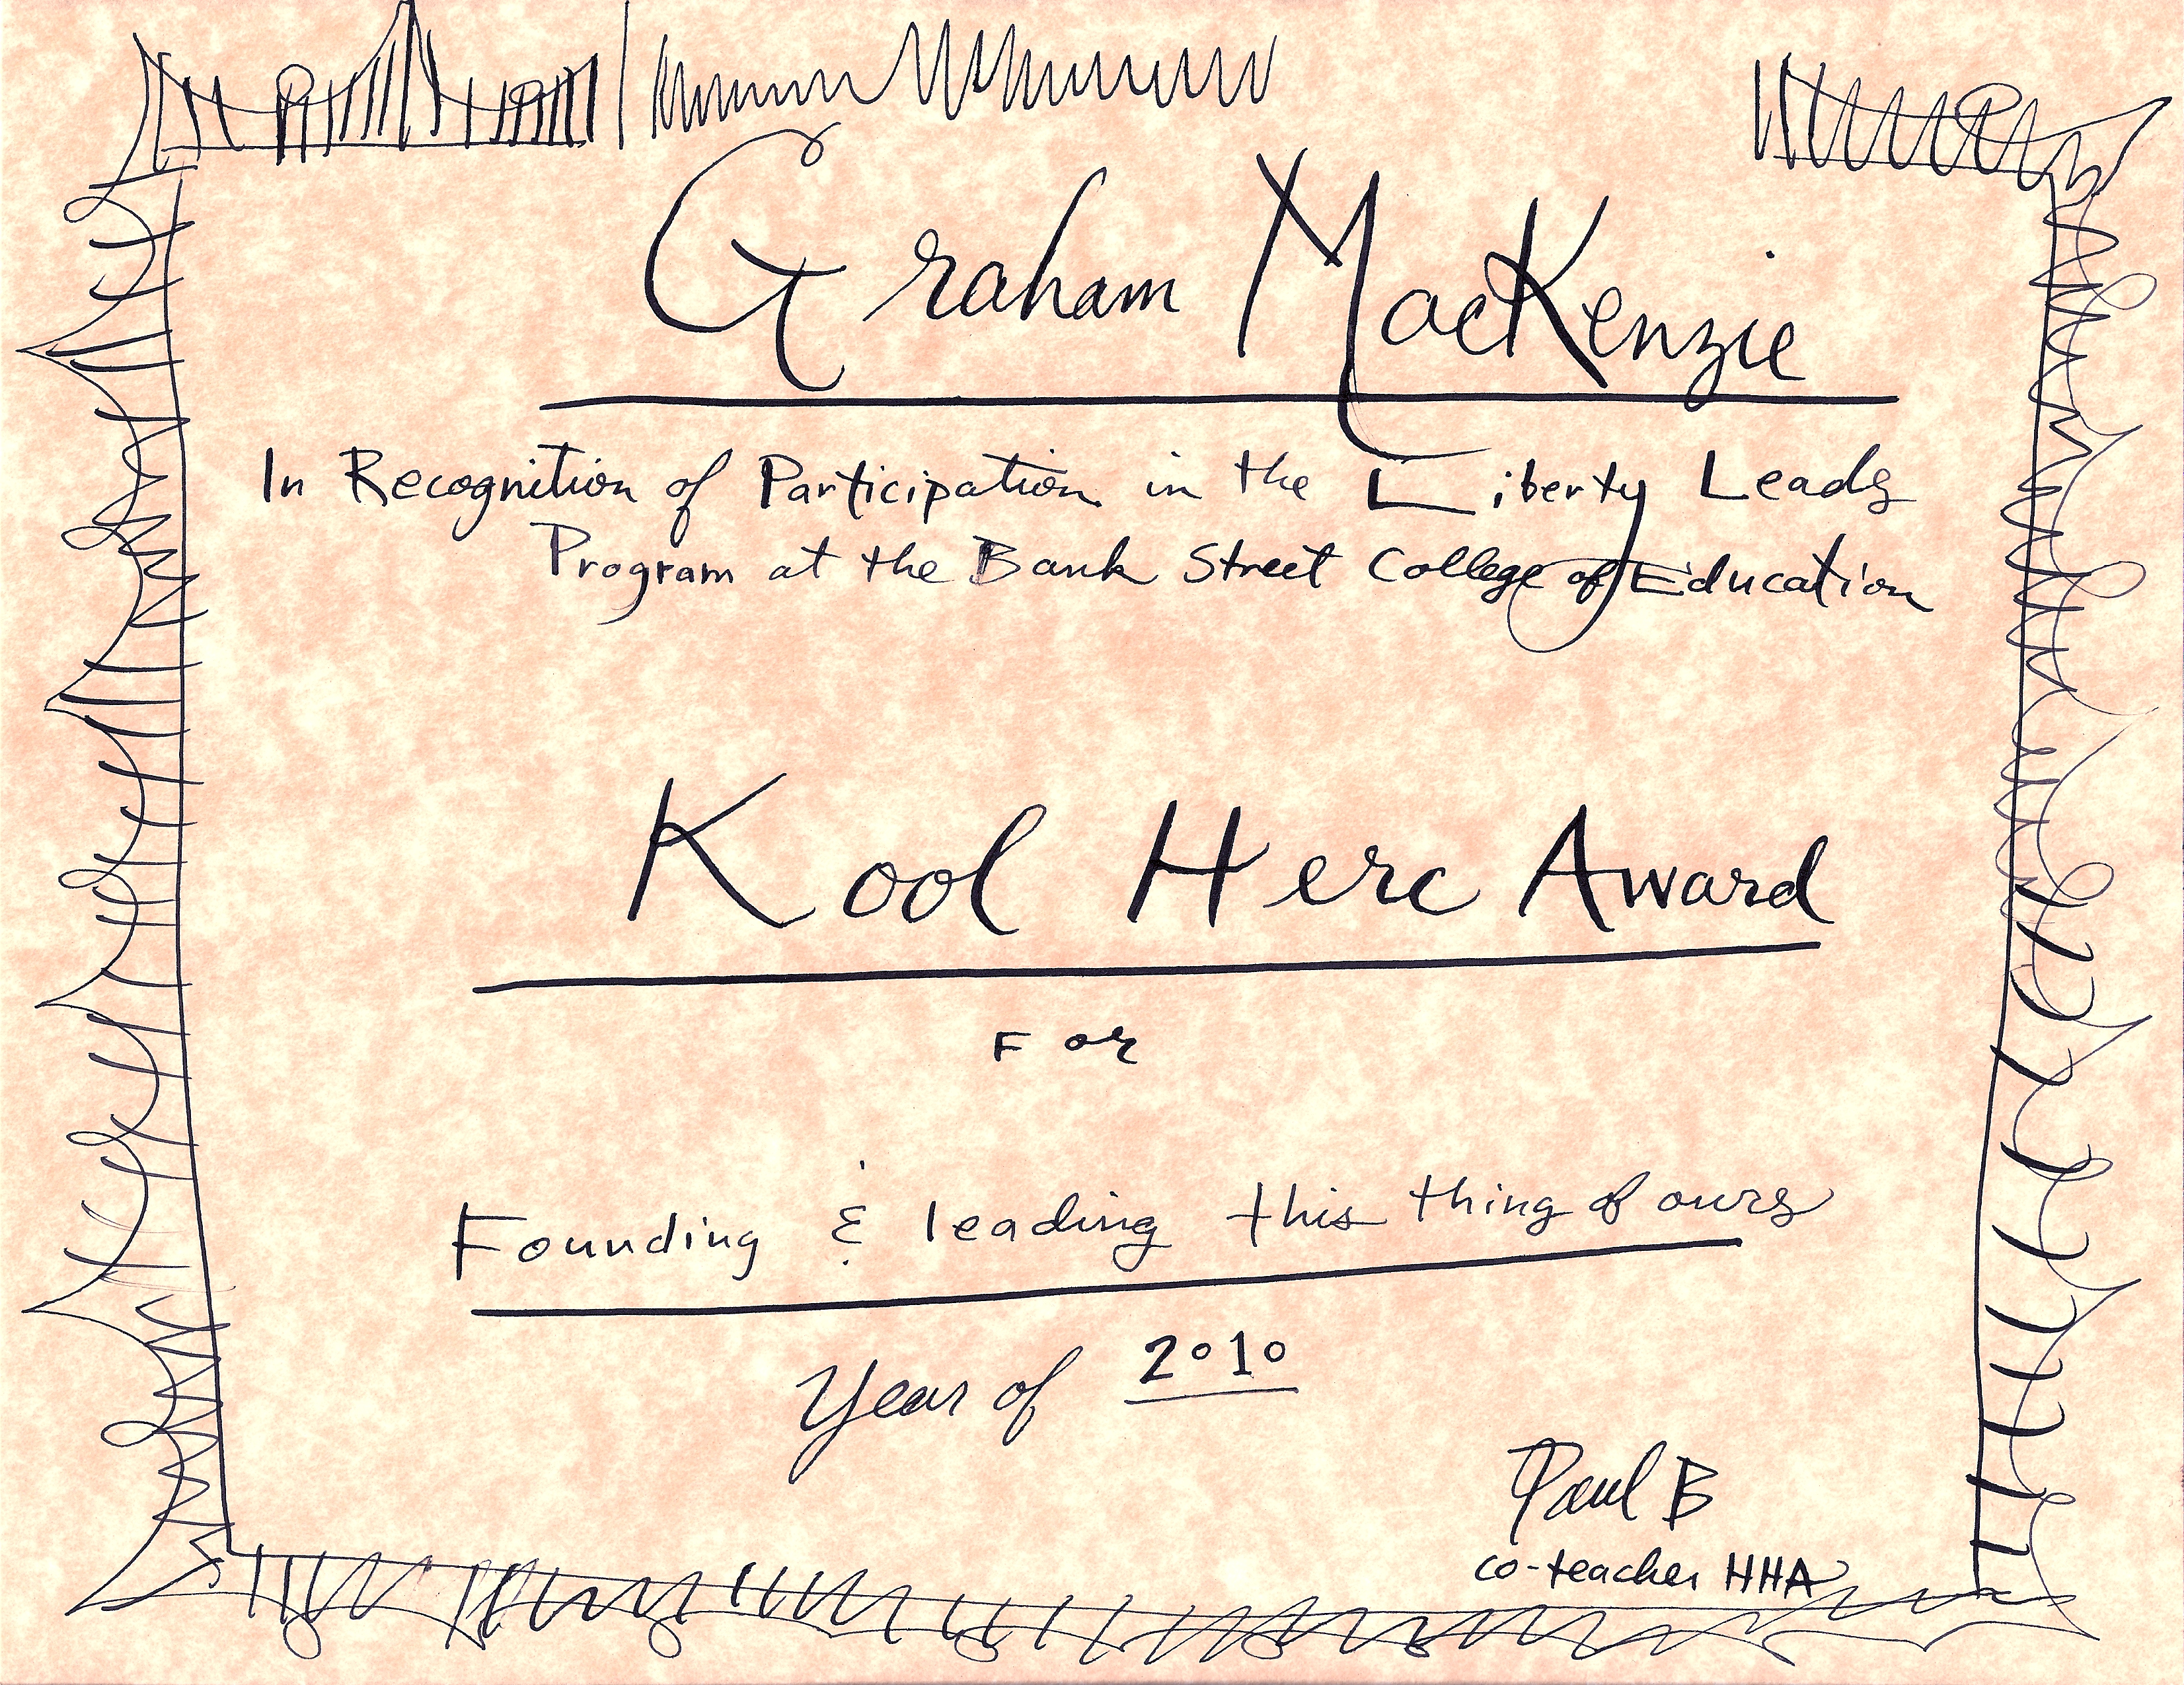 Graham MacKenzie
In Recognition of Participation in the Liberty Leads
Program at the Bank Street College of Education
Kool Herc Award
For
Founding & leading this thing of ours
Year of 2010
Paul B
co-teacher HHA